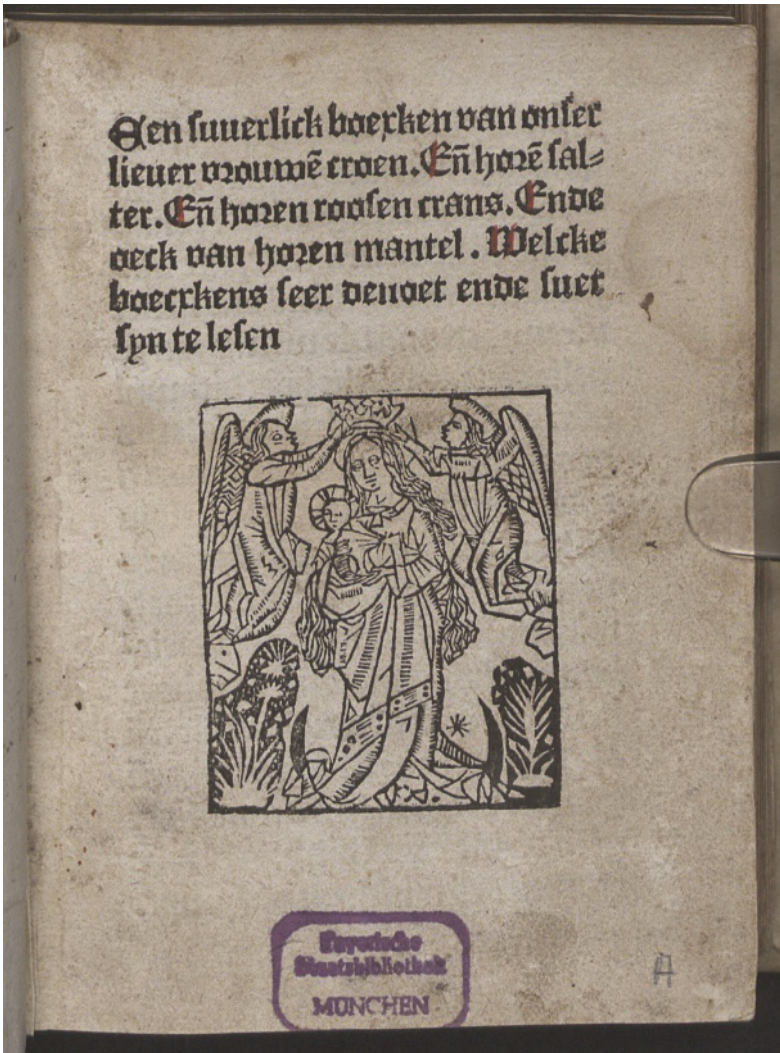 Een suuerlick boexken van onser
lieuer vrouwē croen. Eñ horē sal⸗
ter. Eñ horen roosen crans. Ende
oeck van horen mantel. Welcke
boecxkens seer deuoet ende suet
syn te lesen
Bayerische
Staatsbibliothek
MÜNCHEN
A